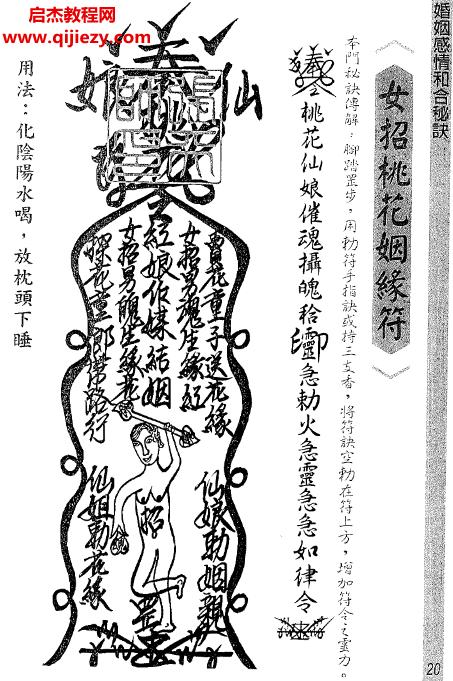 婚姻感情和合秘訣
女招桃花姻緣符
本門秘訣傳解：腳踏罡步，用勅符手指訣或持三支香，將符訣空勅在符上方，增加符令之靈力。
桃花仙娘催魂攝魄
急勅火急靈急急如律令
仙娘
買花童子送花緣
女招男魂生緣紅
紅娘作媒結姻
女招男魄生緣花
探花童郎帶路行
仙娘勅姻親
招
罡
仙姐勅花緣
用法：化陰陽水喝，放枕頭下睡
启杰教程网
www.qijiezy.com
20